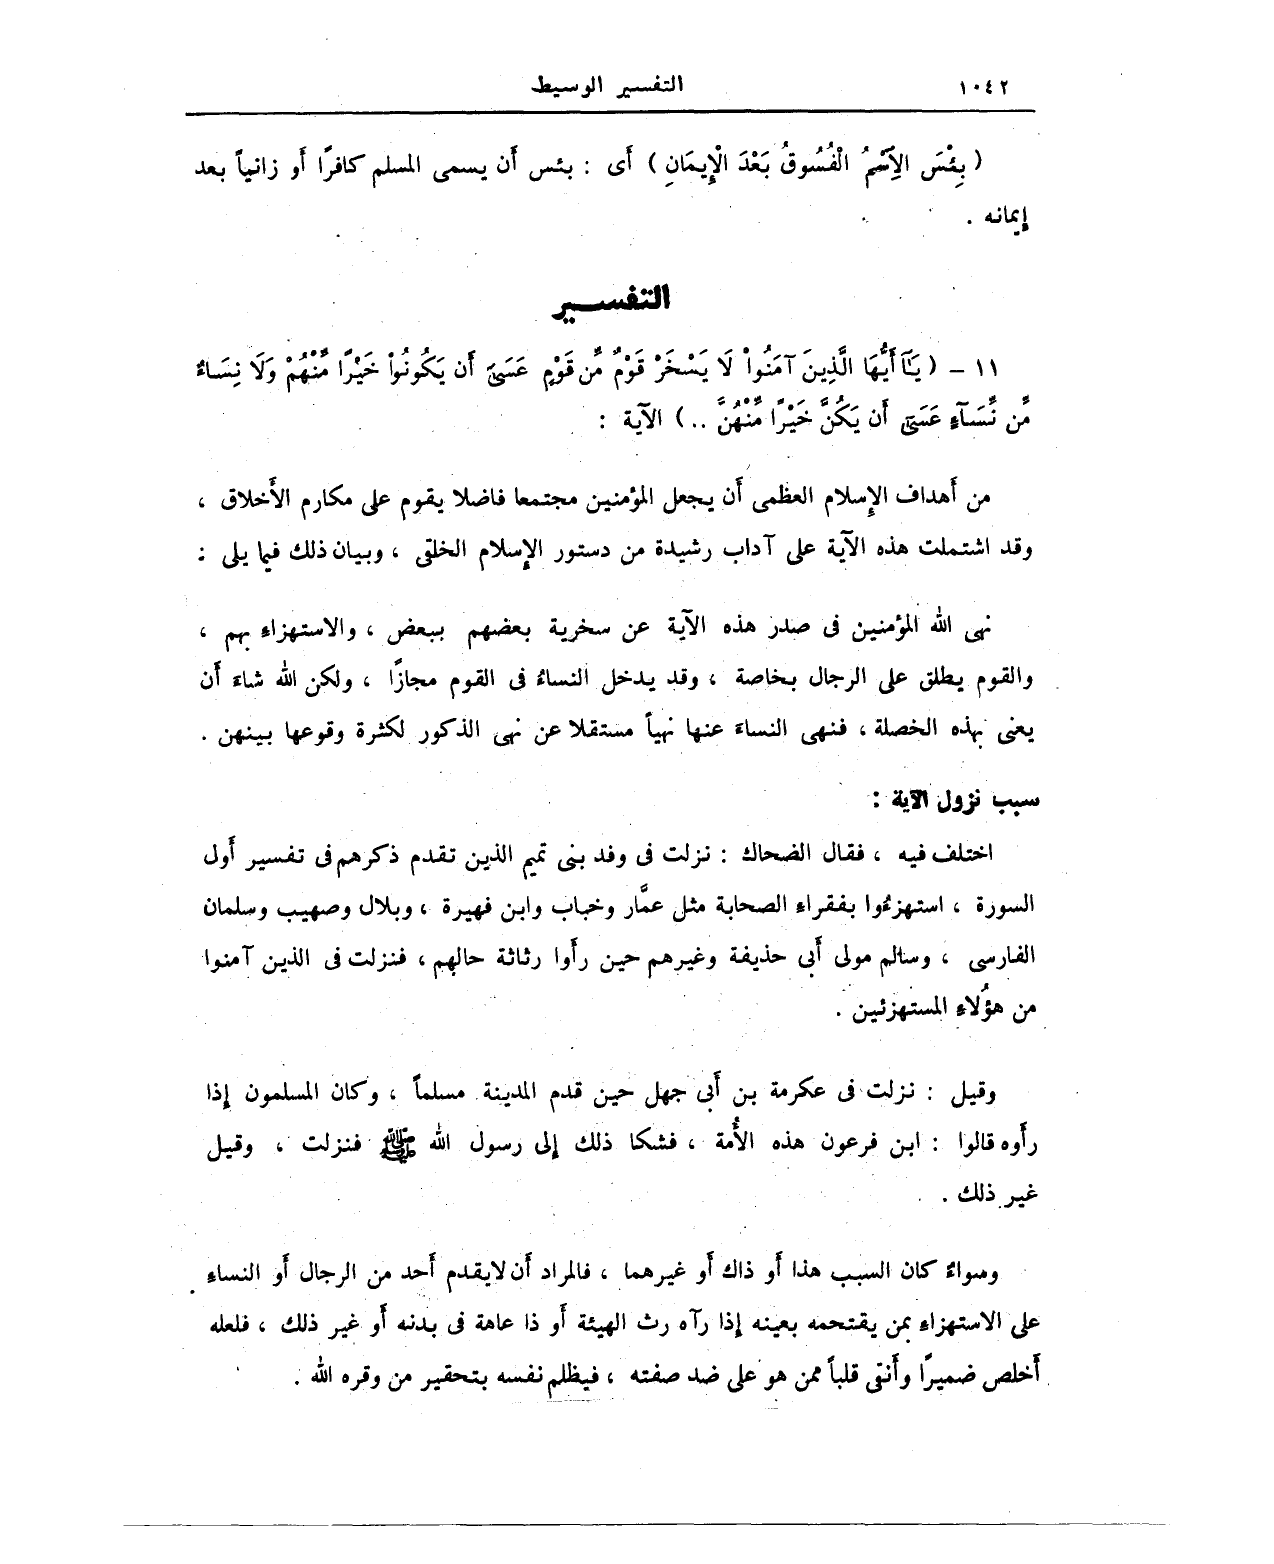 ١٠٤٢ التفسير الوسيط
( بِئْسَ الِٱسْمُ الْفُسُوقُ بَعْدَ الْإِيمَانِ ) أَى : بئس أَن يسمى المسلم كافرًا أَو زانياً بعد
إيمانه .
التفسير
١١ - ( يَـٰٓأَيُّهَا الَّذِينَ آمَنُواْ لَا يَسْخَرْ قَوْمٌ مِّن قَوْمٍ عَسَىٰٓ أَن يَكُونُواْ خَيْرًا مِّنْهُمْ وَلَا نِسَاءٌ
مِّن نِّسَآءٍ عَسَىٰٓ أَن يَكُنَّ خَيْرًا مِّنْهُنَّ .. ) الآية :
من أَهداف الإسلام العظمى أَن يجعل المؤمنين مجتمعا فاضلا يقوم على مكارم الأَخلاق ،
وقد اشتملت هذه الآية على آداب رشيدة من دستور الإسلام الخلقى ، وبيان ذلك فيما يلى :
نهى الله المؤمنين فى صدر هذه الآية عن سخرية بعضهم ببعض ، والاستهزاء بهم ،
والقوم يطلق على الرجال بخاصة ، وقد يدخل النساءُ فى القوم مجازًا ، ولكن الله شاءَ أَن
يعنى بهذه الخصلة ، فنهى النساءَ عنها نهياً مستقلا عن نهى الذكور لكثرة وقوعها بينهن .
سبب نزول الآية :
اختلف فيه ، فقال الضحاك : نزلت فى وفد بنى تميم الذين تقدم ذكرهم فى تفسير أَول
السورة ، استهزءُوا بفقراءِ الصحابة مثل عمَّار وخباب وابن فهيرة ، وبلال وصهيب وسلمان
الفارسى ، وسالم مولى أَبى حذيفة وغيرهم حين رأَوا رثاثة حالهم ، فنزلت فى الذين آمنوا
من هؤُلاءِ المستهزئين .
وقيل : نزلت فى عكرمة بن أَبى جهل حين قدم المدينة مسلماً ، وكان المسلمون إذا
رأَوه قالوا : ابن فرعون هذه الأُمة ، فشكا ذلك إلى رسول الله ﷺ فنزلت ، وقيل
غير ذلك .
وسواءٌ كان السبب هذا أَو ذاك أَو غيرهما ، فالمراد أَن لايقدم أَحد من الرجال أَو النساءِ
على الاستهزاءِ بمن يقتحمه بعينه إذا رآه رث الهيئة أَو ذا عاهة فى بدنه أَو غير ذلك ، فلعله
أَخلص ضميرًا وأَنقى قلباً ممن هو على ضد صفته ، فيظلم نفسه بتحقير من وقره الله .